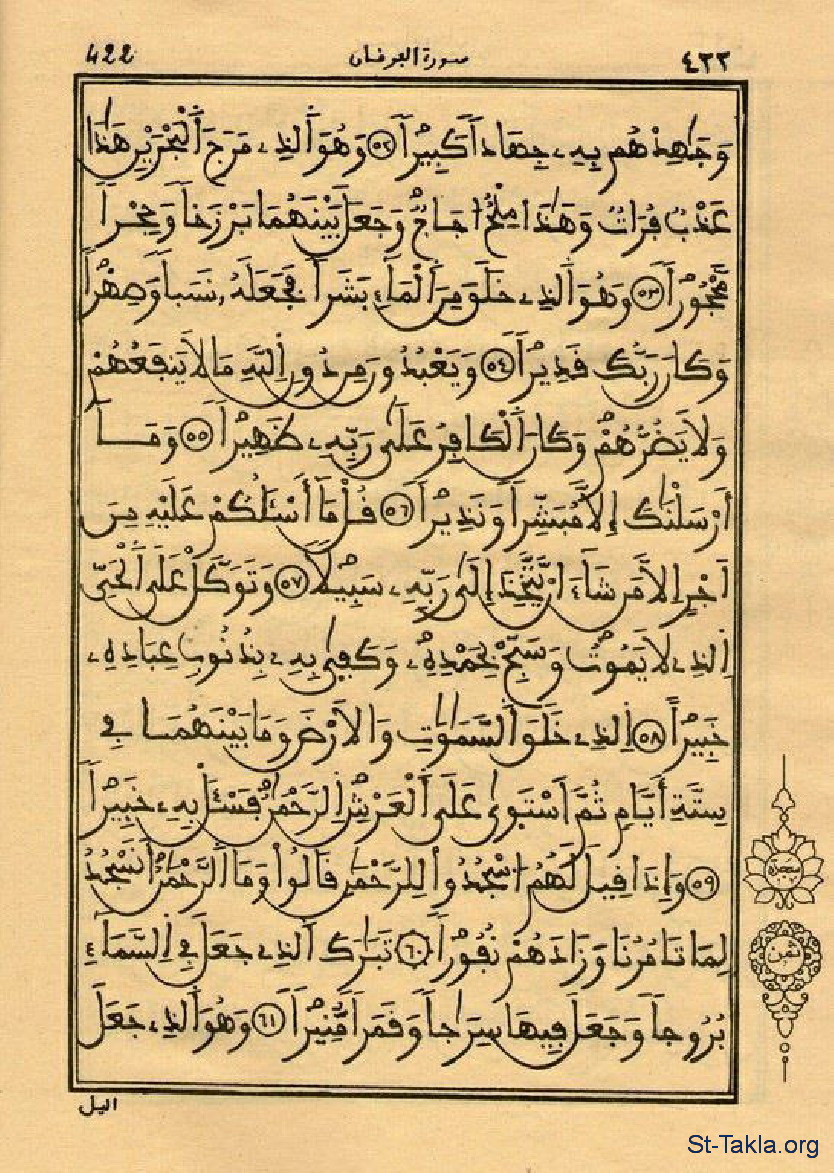 422 سورة الفرقان ٤٢٢
وَجَٰهِدْهُم بِهِۦ جِهَاداً كَبِيراً ٥٢ وَهُوَ اَلذِے مَرَجَ اَلْبَحْرَيْنِ هَٰذَا
عَذْبٌ فُرَاتٌ وَهَٰذَا مِلْحٌ اجَاجٌ وَجَعَلَ بَيْنَهُمَا بَرْزَخاً وَحِجْراً
مَّحْجُوراً ٥٣ وَهُوَ اَلذِے خَلَقَ مِنَ اَلْمَآءِ بَشَراً فَجَعَلَهُۥ نَسَباً وَصِهْراً
وَكَانَ رَبُّكَ قَدِيراً ٥٤ وَيَعْبُدُونَ مِن دُونِ اِللَّهِ مَا لاَ يَنفَعُهُمْ
وَلاَ يَضُرُّهُمْ وَكَانَ اَلْكَافِرُ عَلَىٰ رَبِّهِۦ ظَهِيراً ٥٥ وَمَآ
أَرْسَلْنَٰكَ إِلاَّ مُبَشِّراً وَنَذِيراً ٥٦ قُلْ مَآ أَسْـَٔلُكُمْ عَلَيْهِ مِنَ
اَجْرٍ اِلاَّ مَن شَآءَ انْ يَّتَّخِذَ إِلَىٰ رَبِّهِۦ سَبِيلاً ٥٧ وَتَوَكَّلْ عَلَى اَلْحَيِّ
اِلذِے لاَ يَمُوتُ وَسَبِّحْ بِحَمْدِهِۦ وَكَفىٰ بِهِۦ بِذُنُوبِ عِبَادِهِۦ
خَبِيراً ٥٨ اِلذِے خَلَقَ اَلسَّمَٰوَٰتِ وَالاَرْضَ وَمَا بَيْنَهُمَا فِے
سِتَّةِ أَيَّامٍ ثُمَّ اَسْتَوىٰ عَلَى اَلْعَرْشِ اِلرَّحْمَٰنُ فَسْـَٔلْ بِهِۦ خَبِيراً
٥٩ وَإِذَا قِيلَ لَهُمُ اسْجُدُواْ لِلرَّحْمَٰنِ قَالُواْ وَمَا اَلرَّحْمَٰنُ أَنَسْجُدُ
لِمَا تَامُرُنَا وَزَادَهُمْ نُفُوراً ٦٠ تَبَٰرَكَ اَلذِے جَعَلَ فِے اِلسَّمَآءِ
بُرُوجاً وَجَعَلَ فِيهَا سِرَٰجاً وَقَمَراً مُّنِيراً ٦١ وَهُوَ اَلذِے جَعَلَ
سجدة
ثمن
اليل
St-Takla.org